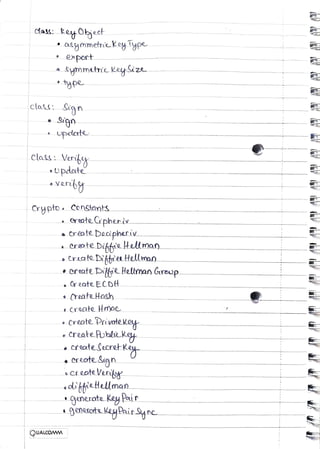 class: Key Object
• asymmetric Key Type
• export
• symmetric Key Size
• type
class: Sign
• Sign
• update
Class: Verify
• Update
• verify
Crypto. Constants
• create Cipheriv
• create Decipheriv
• create Diffie Hellman
• create Diffie Hellman
• create Diffie Hellman Group
• Create ECDH
• Create Hash
• create Hmac
• create Private Key
• create Public Key
• create Secret Key
• create Sign
• create Verify
• diffie Hellman
• generate Key Pair
• generate Key Pair Sync
QUALCOMM